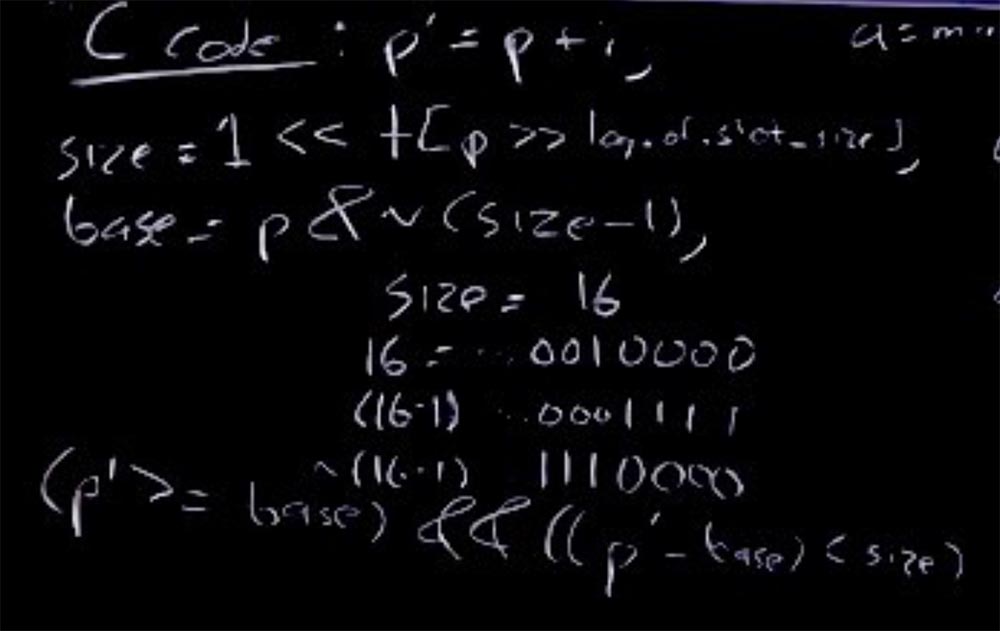 C Code : p' = p + i, a = m
size = 1 << t[p >> log.of.slot_size],
base = p & ~(size-1),
size = 16
16 = ... 0010000
(16-1) ... 0001111
~(16-1) 1110000
(p' >= base) && ((p' - base) < size)